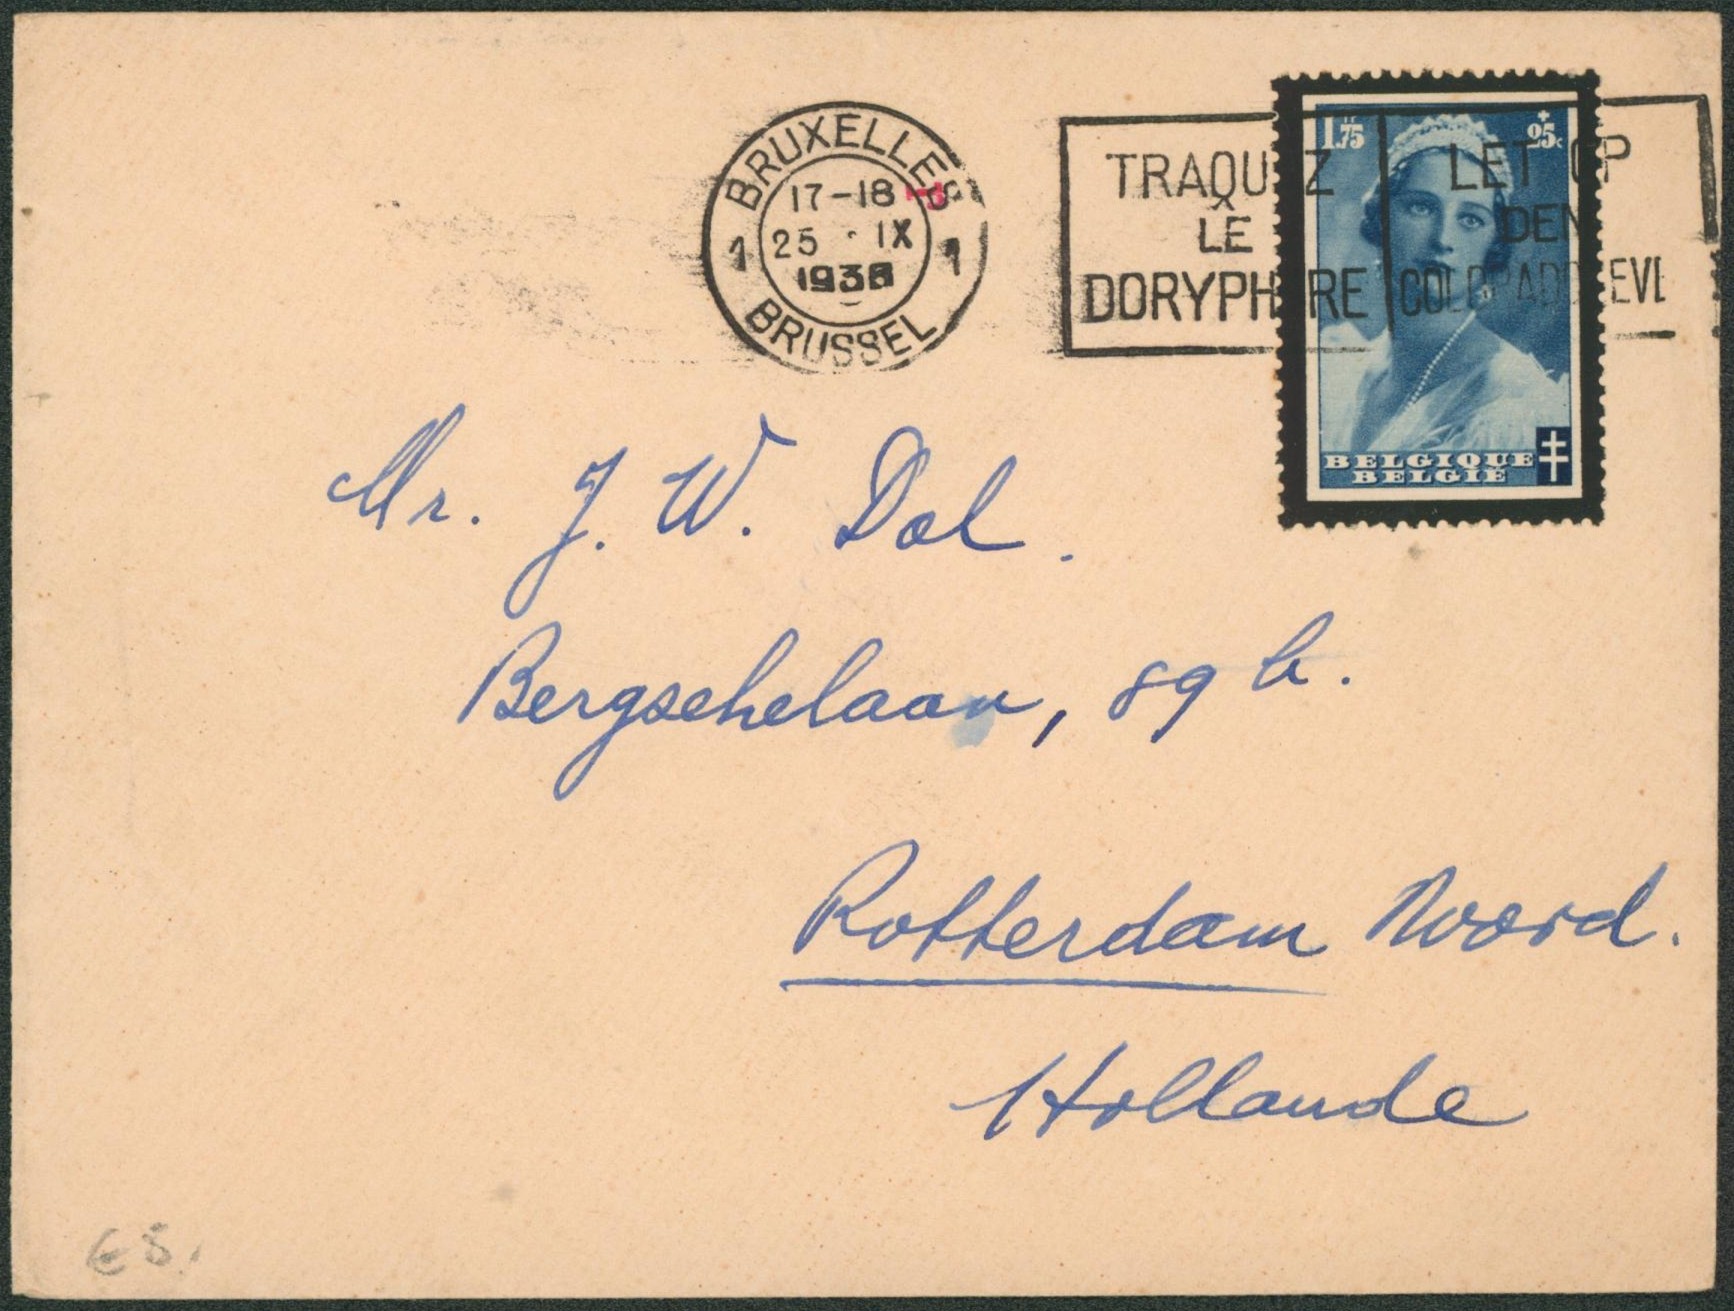 BRUXELLES
17-18
25 · IX
1936
1 1
BRUSSEL
TRAQUEZ
LE
DORYPHORE
LET OP
DEN
COLORADOKEVE
1.75 + 25c
BELGIQUE
BELGIË
Mr. J. W. Dol.
Bergschelaan, 89 b.
Rotterdam Noord.
Hollande
€ 5.